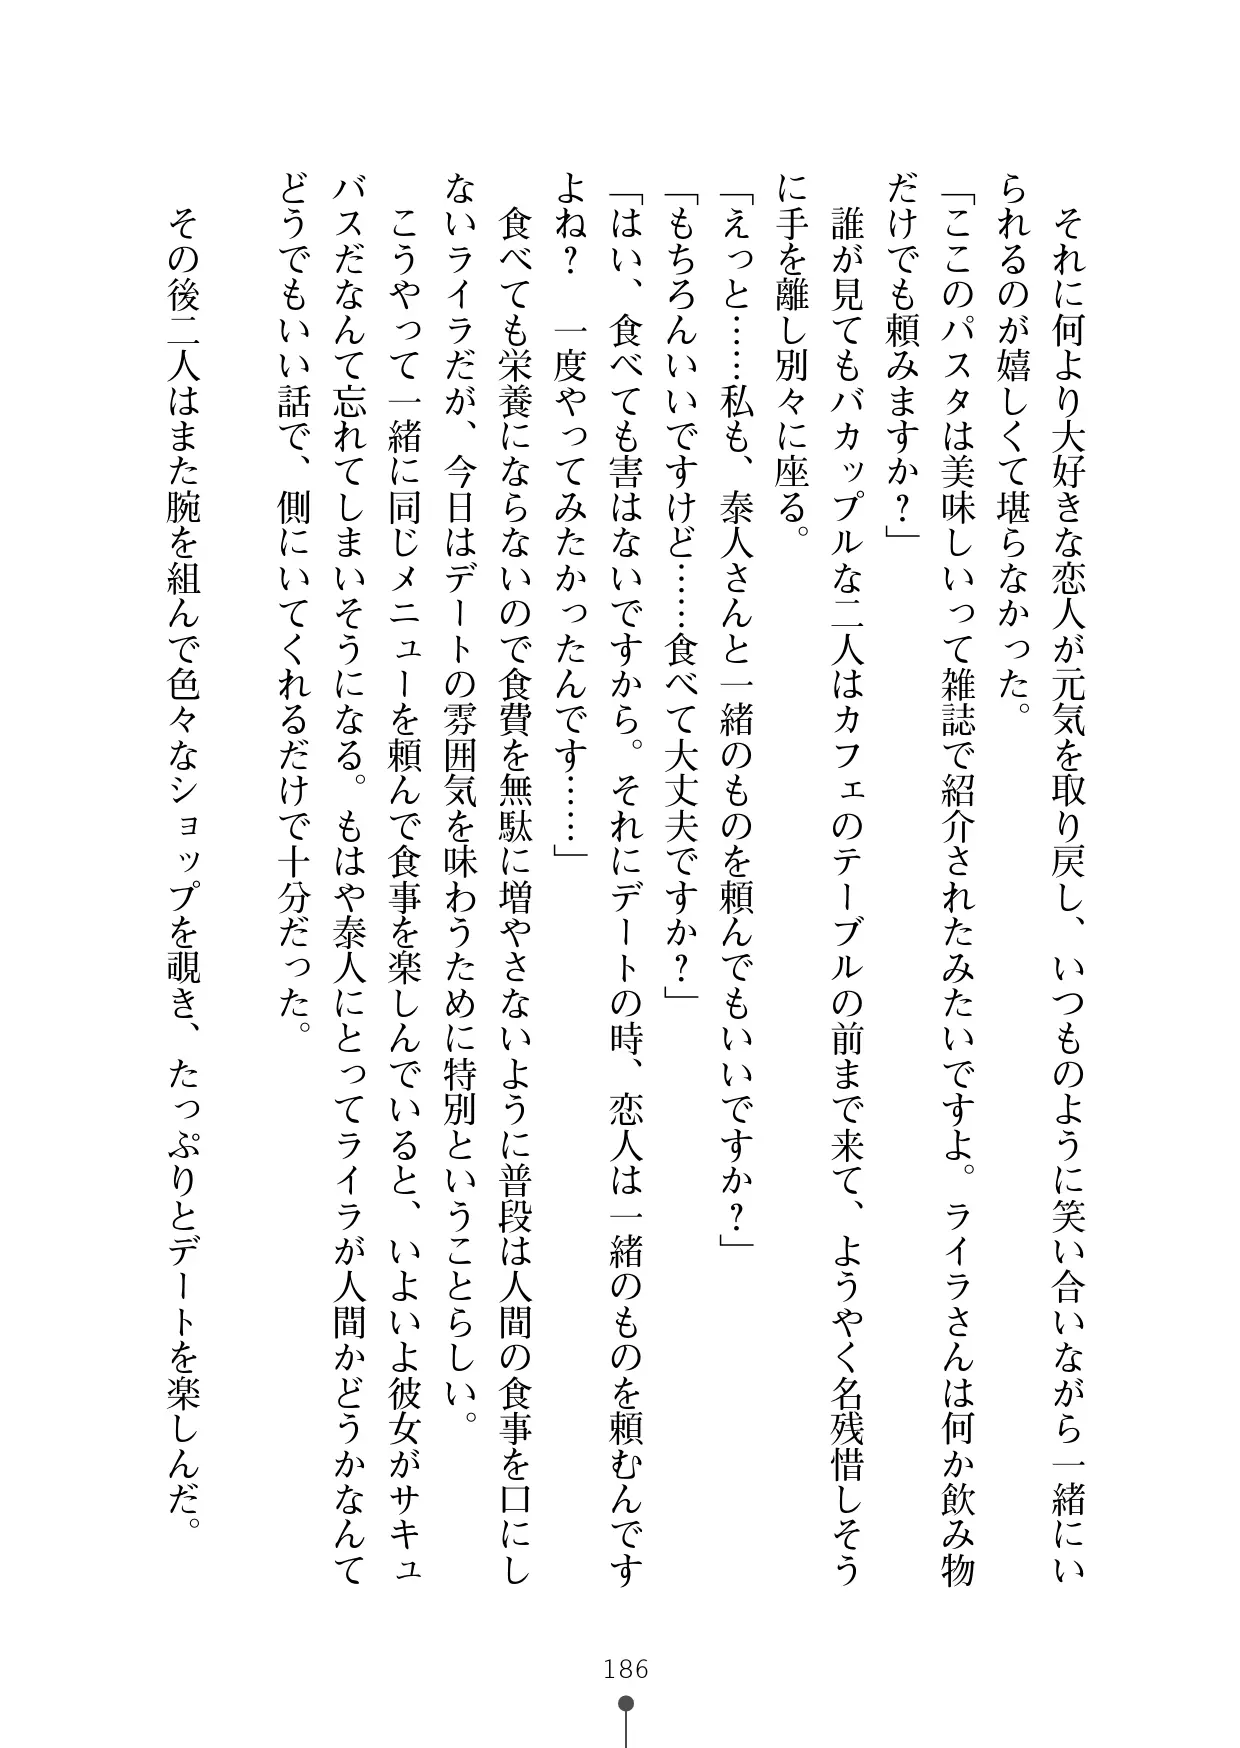 それに何より大好きな恋人が元気を取り戻し、いつものように笑い合いながら一緒にい
られるのが嬉しくて堪らなかった。
「ここのパスタは美味しいって雑誌で紹介されたみたいですよ。ライラさんは何か飲み物
だけでも頼みますか？」
誰が見てもバカップルな二人はカフェのテーブルの前まで来て、ようやく名残惜しそう
に手を離し別々に座る。
「えっと……私も、泰人さんと一緒のものを頼んでもいいですか？」
「もちろんいいですけど……食べて大丈夫ですか？」
「はい、食べても害はないですから。それにデートの時、恋人は一緒のものを頼むんです
よね？　一度やってみたかったんです……」
食べても栄養にならないので食費を無駄に増やさないように普段は人間の食事を口にし
ないライラだが、今日はデートの雰囲気を味わうために特別ということらしい。
こうやって一緒に同じメニューを頼んで食事を楽しんでいると、いよいよ彼女がサキュ
バスだなんて忘れてしまいそうになる。もはや泰人にとってライラが人間かどうかなんて
どうでもいい話で、側にいてくれるだけで十分だった。
その後二人はまた腕を組んで色々なショップを覗き、たっぷりとデートを楽しんだ。
186